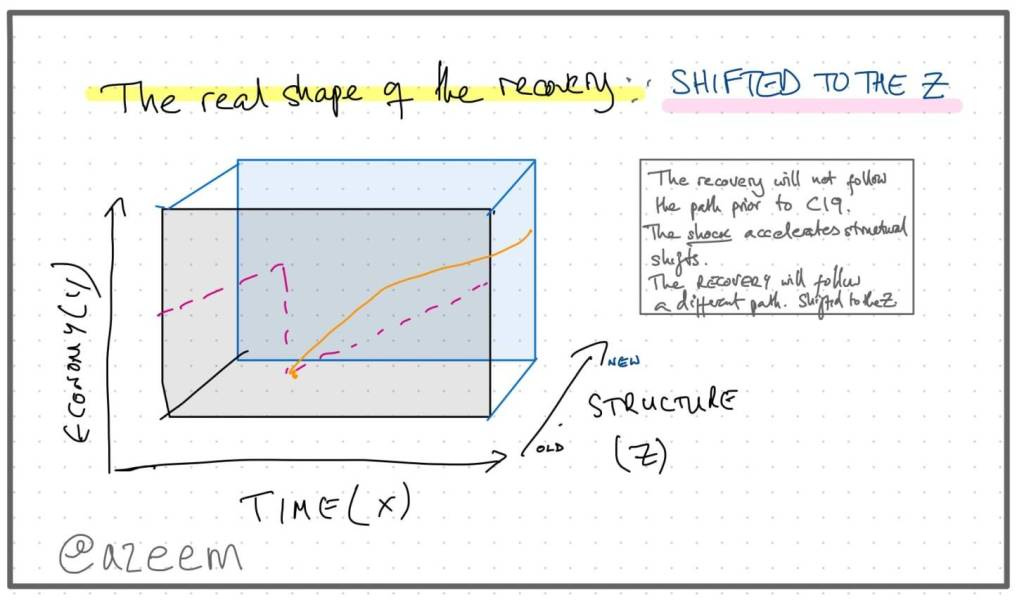 The real shape of the recovery: SHIFTED TO THE Z
The recovery will not follow
the path prior to C19.
The shock accelerates structural
shifts.
The RECOVERY will follow
a different path. Shifted to the Z
ECONOMY (Y)
NEW
STRUCTURE
OLD
(Z)
TIME (X)
@azeem